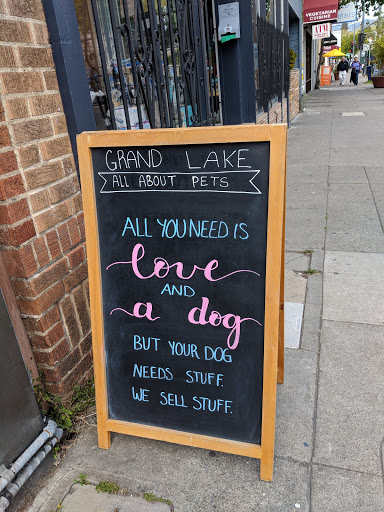 GRAND LAKE
ALL ABOUT PETS
ALL YOU NEED IS
love
AND
a dog
BUT YOUR DOG
NEEDS STUFF.
WE SELL STUFF.
VEGETARIAN
CUISINE
ATM